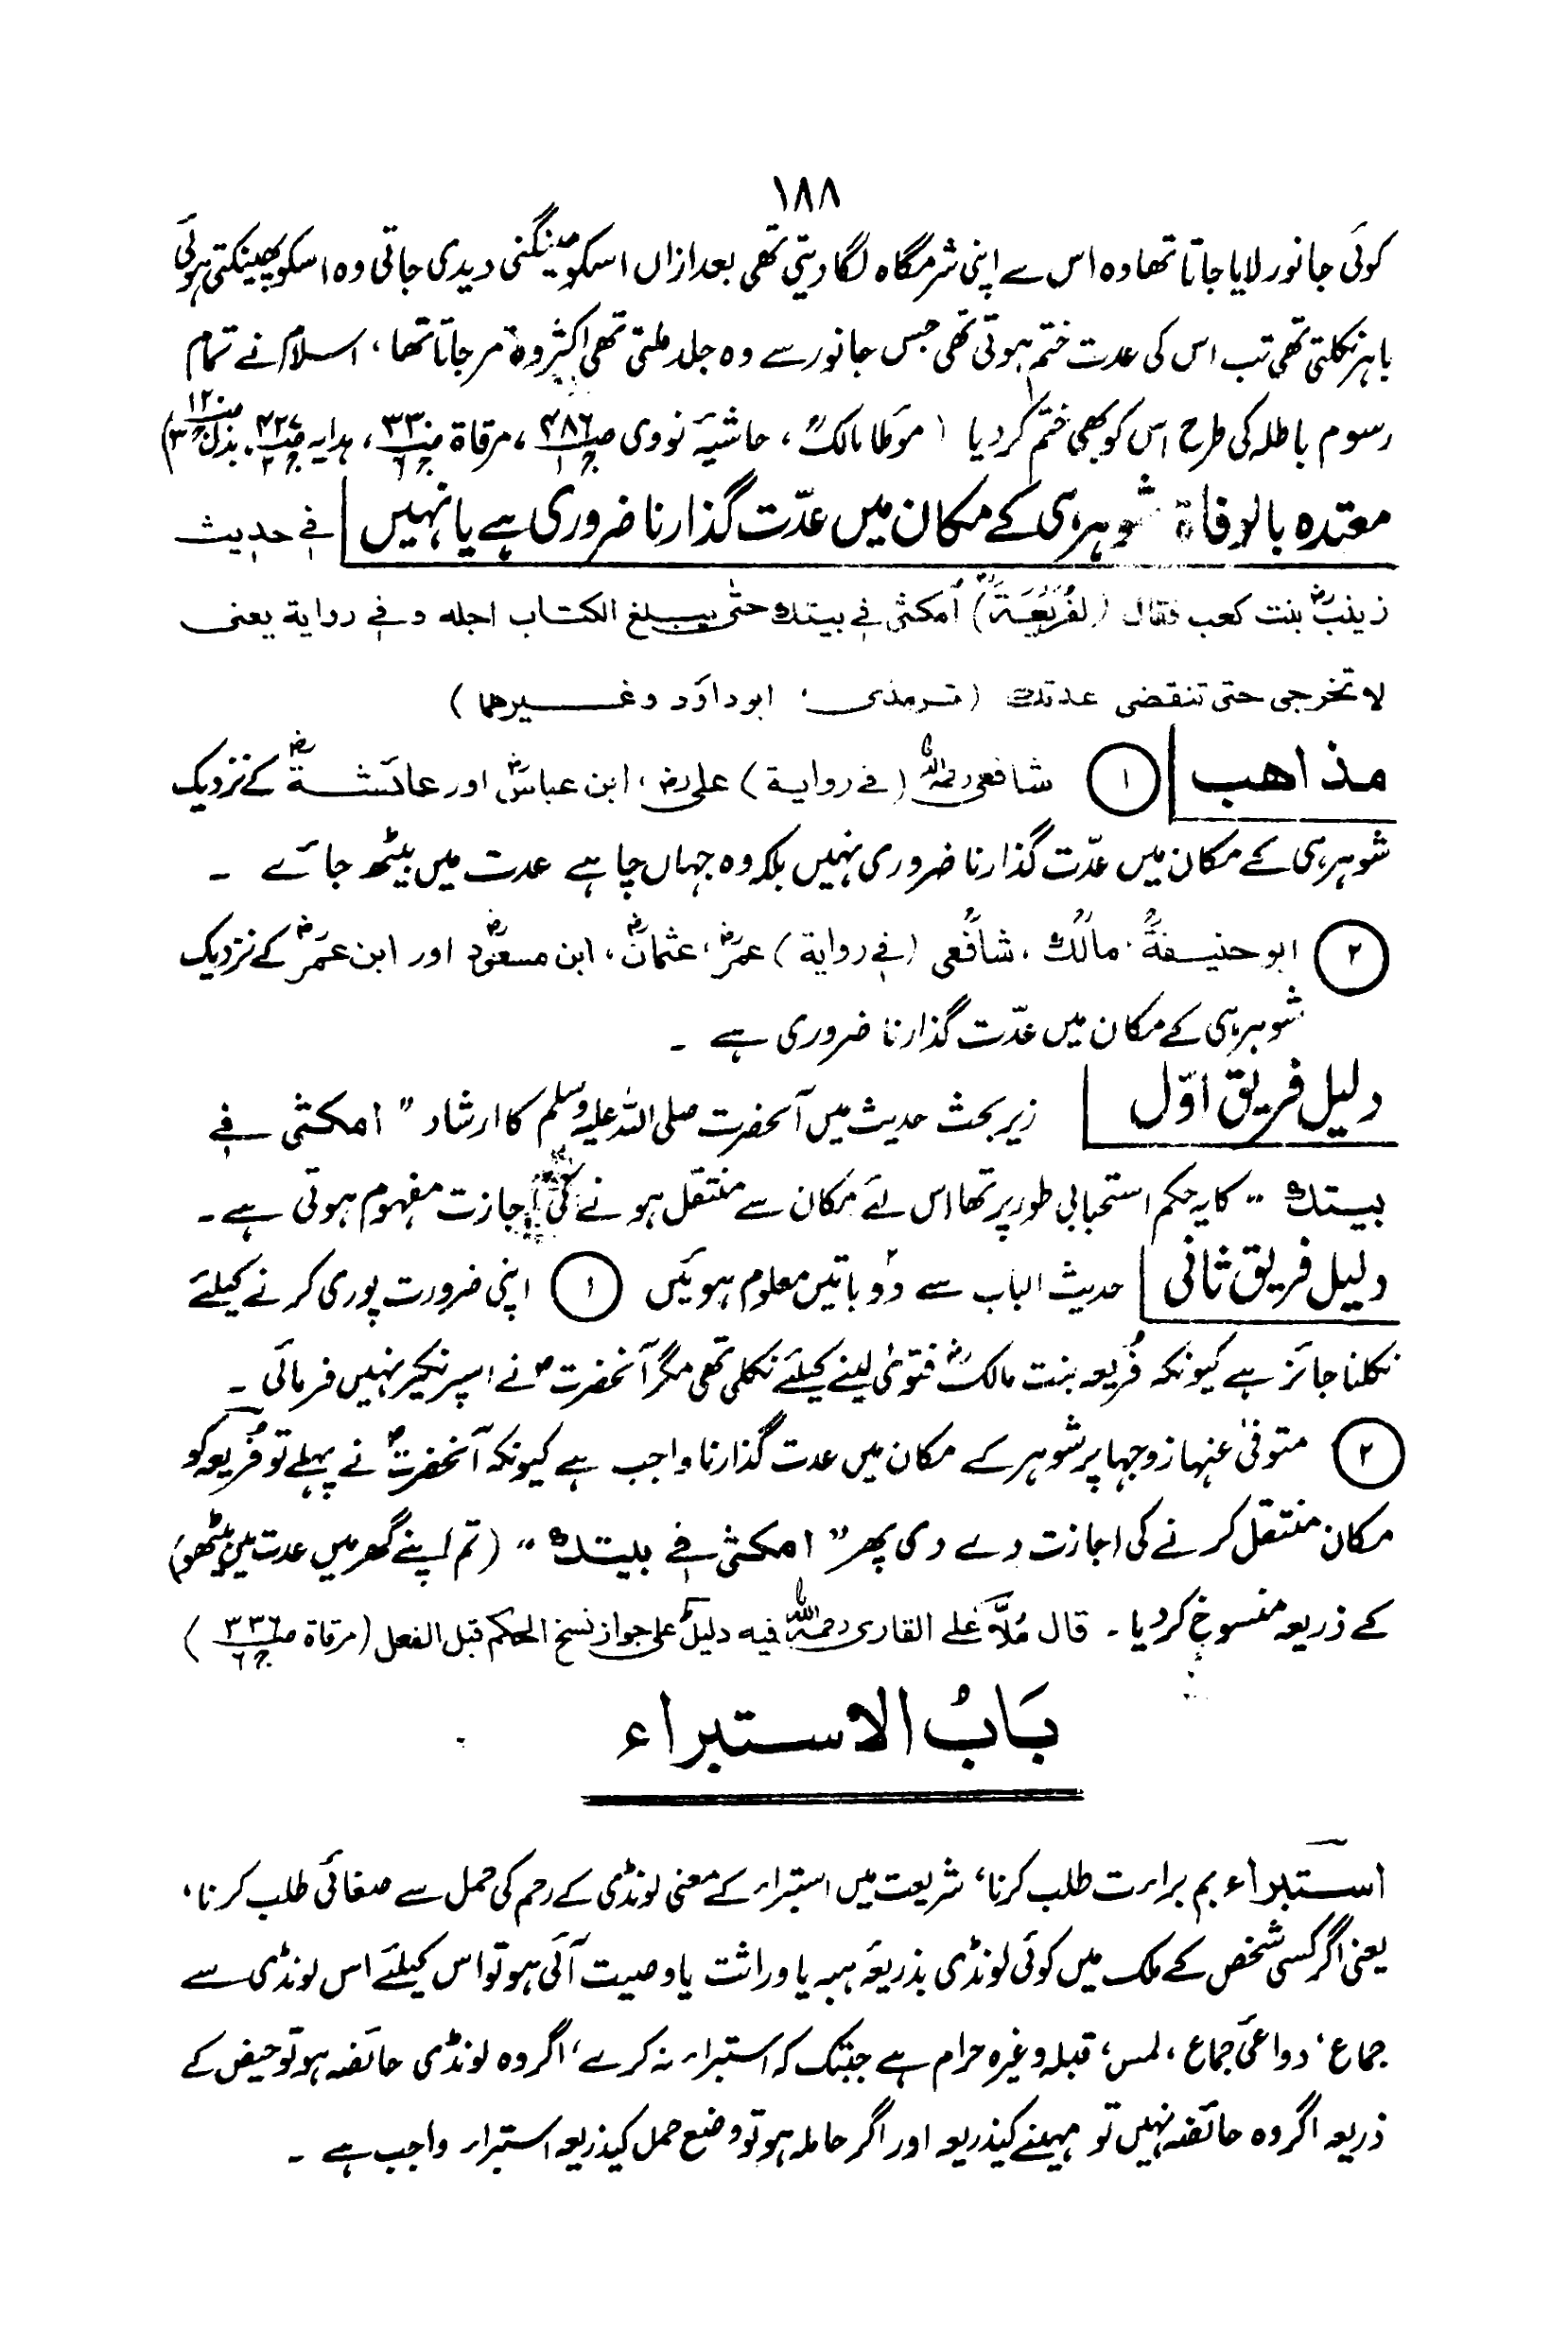 ۱۸۸
کوئی جانور لایا جاتا تھا وہ اس سے اپنی شرمگاہ لگا دیتی تھی بعد ازاں اسکو مینگنی دیدی جاتی وہ اسکو پھینکتی ہوئی
باہر نکلتی تھی تب اس کی عدت ختم ہوتی تھی جس جانور سے وہ جلد ملتی تھی اکثر وہ مر جاتا تھا ، اسلام نے تمام
رسوم باطلہ کی طرح اس کو بھی ختم کر دیا ( موطا مالکؒ ، حاشیۂ نووی ص۴۸۶ ج۱ ، مرقاۃ ص۳۳۰ ج۶ ، ہدایہ ص۴۲۷ ج۲ ، بذل ص۱۲۰ ج۳)
معتدہ بالوفاۃ شوہر ہی کے مکان میں عدّت گذارنا ضروری ہے یا نہیں | فی حدیث
زینبؓ بنت کعب فقال (لفُرَیعَۃَ) اُمکثی فی بیتك حتّی یبلغ الکتاب اجله وفی رواية یعنی
لا تخرجی حتی تنقضی عدتك ( ترمذی ، ابوداؤد وغیرهما )
مذاهب | ① شافعی رحمہ اللہ (فی رواية) علی رض، ابن عباسؓ اور عائشۃؓ کے نزدیک
شوہر ہی کے مکان میں عدّت گذارنا ضروری نہیں بلکہ وہ جہاں چاہے عدت میں بیٹھ جائے ۔
② ابوحنیفۃؒ ، مالكؒ ، شافعیؒ (فی رواية) عمرؓ ، عثمانؓ ، ابن مسعودؓ اور ابن عمرؓ کے نزدیک
شوہر ہی کے مکان میں عدّت گذارنا ضروری ہے ۔
دلیل فریق اوّل | زیر بحث حدیث میں آنحضرت صلی اللہ علیہ وسلم کا ارشاد " امکثی فی
بیتك " کا یہ حکم استحبابی طور پر تھا اس لئے مکان سے منتقل ہونے کی اجازت مفہوم ہوتی ہے ۔
دلیل فریق ثانی | حدیث الباب سے دو باتیں معلوم ہوئیں ① اپنی ضرورت پوری کرنے کیلئے
نکلنا جائز ہے کیونکہ فُریعہ بنت مالکؓ فتویٰ لینے کیلئے نکلی تھی مگر آنحضرتؐ نے اسپر نکیر نہیں فرمائی ۔
② متوفیٰ عنہا زوجہا پر شوہر کے مکان میں عدت گذارنا واجب ہے کیونکہ آنحضرتؐ نے پہلے تو فُریعہ کو
مکان منتقل کرنے کی اجازت دے دی پھر " امکثی فی بیتك " (تم اپنے گھر میں عدت میں بیٹھو)
کے ذریعہ منسوخ کر دیا ۔ قال مُلّا علی القاری رحمہ اللہ فیه دلیلٌ علی جواز نسخ الحکم قبل الفعل (مرقاۃ ص۳۳۶ ج۶ )
بَابُ الاستبراء
استبراء بم براءت طلب کرنا ، شریعت میں استبراء کے معنی لونڈی کے رحم کی حمل سے صفائی طلب کرنا ،
یعنی اگر کسی شخص کے ملک میں کوئی لونڈی بذریعۂ ہبہ یا وراثت یا وصیت آئی ہو تو اس کیلئے اس لونڈی سے
جماع ، دواعیٔ جماع ، لمس ، قبلہ وغیرہ حرام ہے جبتک کہ استبراء نہ کرے ، اگر وہ لونڈی حائضہ ہو تو حیض کے
ذریعہ اگر وہ حائضہ نہیں تو مہینے کیذریعہ اور اگر حاملہ ہو تو وضع حمل کیذریعہ استبراء واجب ہے ۔